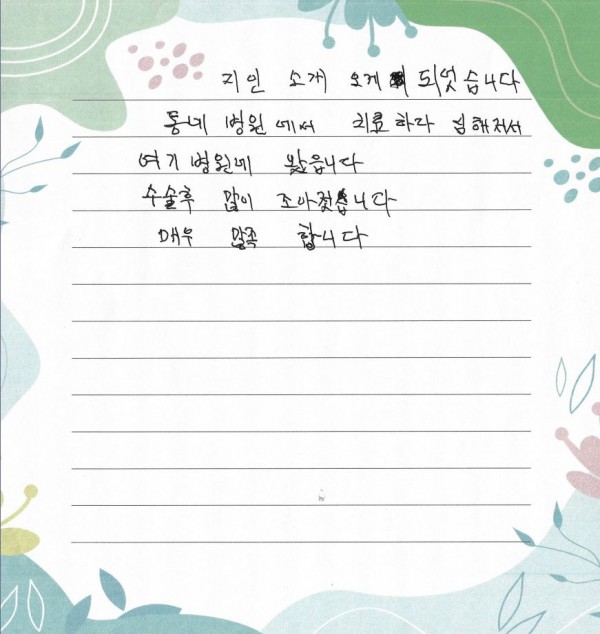 지인 소개 오게 되었습니다
동네 병원에서 치료하다 심해저서
여기 병원에 왔읍니다
수술후 많이 조아젔습니다
매우 만족 합니다